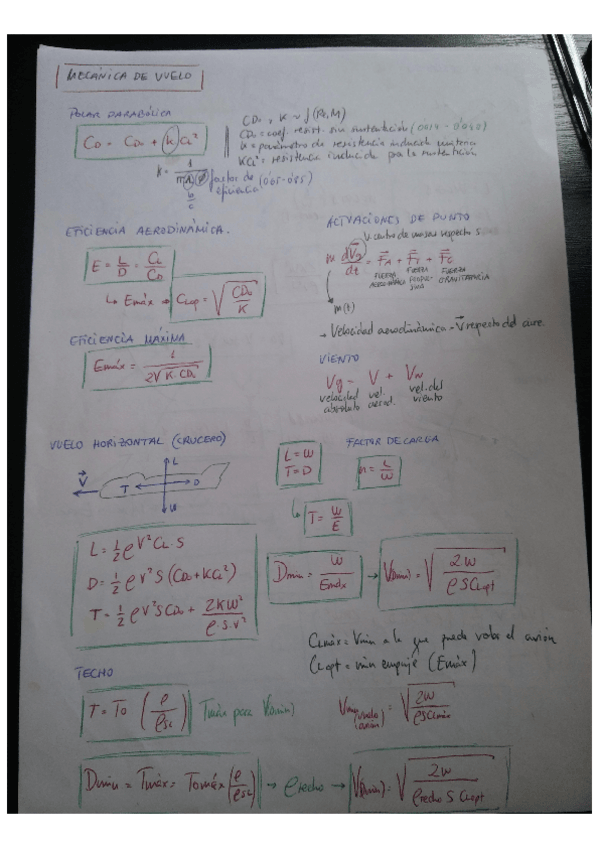 MECÁNICA DE VUELO
POLAR PARABÓLICA
CD = CD₀ + K CL²
K = 1 / πΛφ
b/c
factor de eficiencia (0'65-0'85)
CD₀, K ~ f(Re, M)
CD₀ = coef. resist. sin sustentación
K = parámetro de resistencia inducida
KCL² = resistencia inducida por la sustentación
EFICIENCIA AERODINÁMICA.
E = L/D = CL/CD
↳ Emáx → CLop = √(CD₀/K)
EFICIENCIA MÁXIMA
Emáx = 1 / 2√(K·CD₀)
ACTUACIONES DE PUNTO
V centro de masas respecto s
m dVg/dt = FA + FT + FG
FUERZA AERODINÁMICA
FUERZA PROPULSIVA
FUERZA GRAVITATORIA
m(t)
- Velocidad aerodinámica = V respecto del aire.
VIENTO
Vg = V + Vw
velocidad absoluta
vel. aerod.
vel. del viento
VUELO HORIZONTAL (CRUCERO)
V
L
T
D
W
L = W
T = D
↳ T = W/E
FACTOR DE CARGA
n = L/W
L = ½ ρV²CL·S
D = ½ ρV²S(CD₀+KCL²)
T = ½ ρV²SCD₀ + 2KW²/ρ·S·V²
Dmin = W/Emáx → V(Dmin) = √(2W/ρSCLopt)
CLmáx = Vmin a la que puede volar el avión
CLopt = min empuje (Emáx)
TECHO
T = T₀ (ρ/ρSL)
Tmáx para V(Dmin)
Vmin (vuelo avión) = √(2W/ρSCLmáx)
Dmin = Tmáx = T₀máx(ρ/ρSL) → ρtecho → V(Dmin) = √(2W/ρtecho S CLopt)